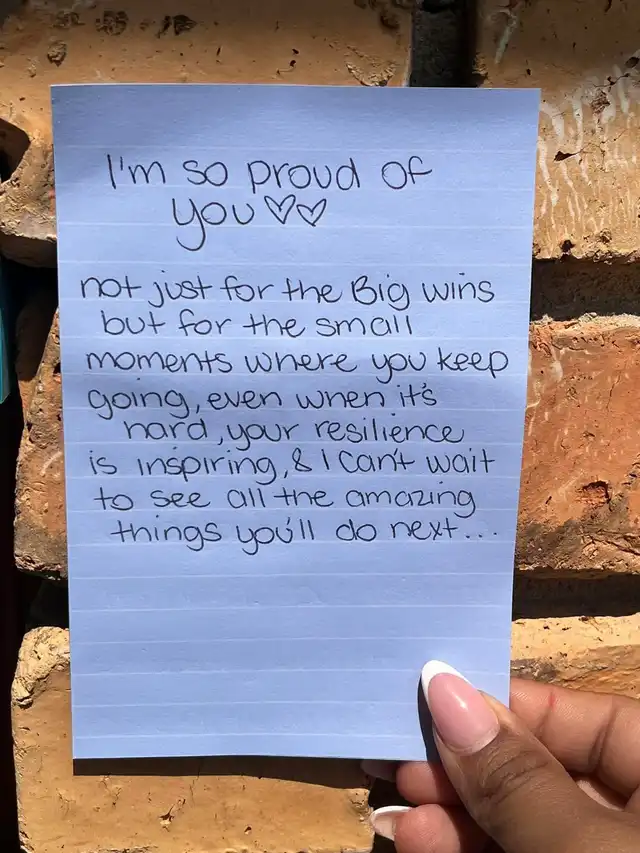 I'm so proud of
you♡♡
not just for the Big wins
but for the small
moments where you keep
going, even when it's
hard, your resilience
is inspiring, & I can't wait
to see all the amazing
things you'll do next...